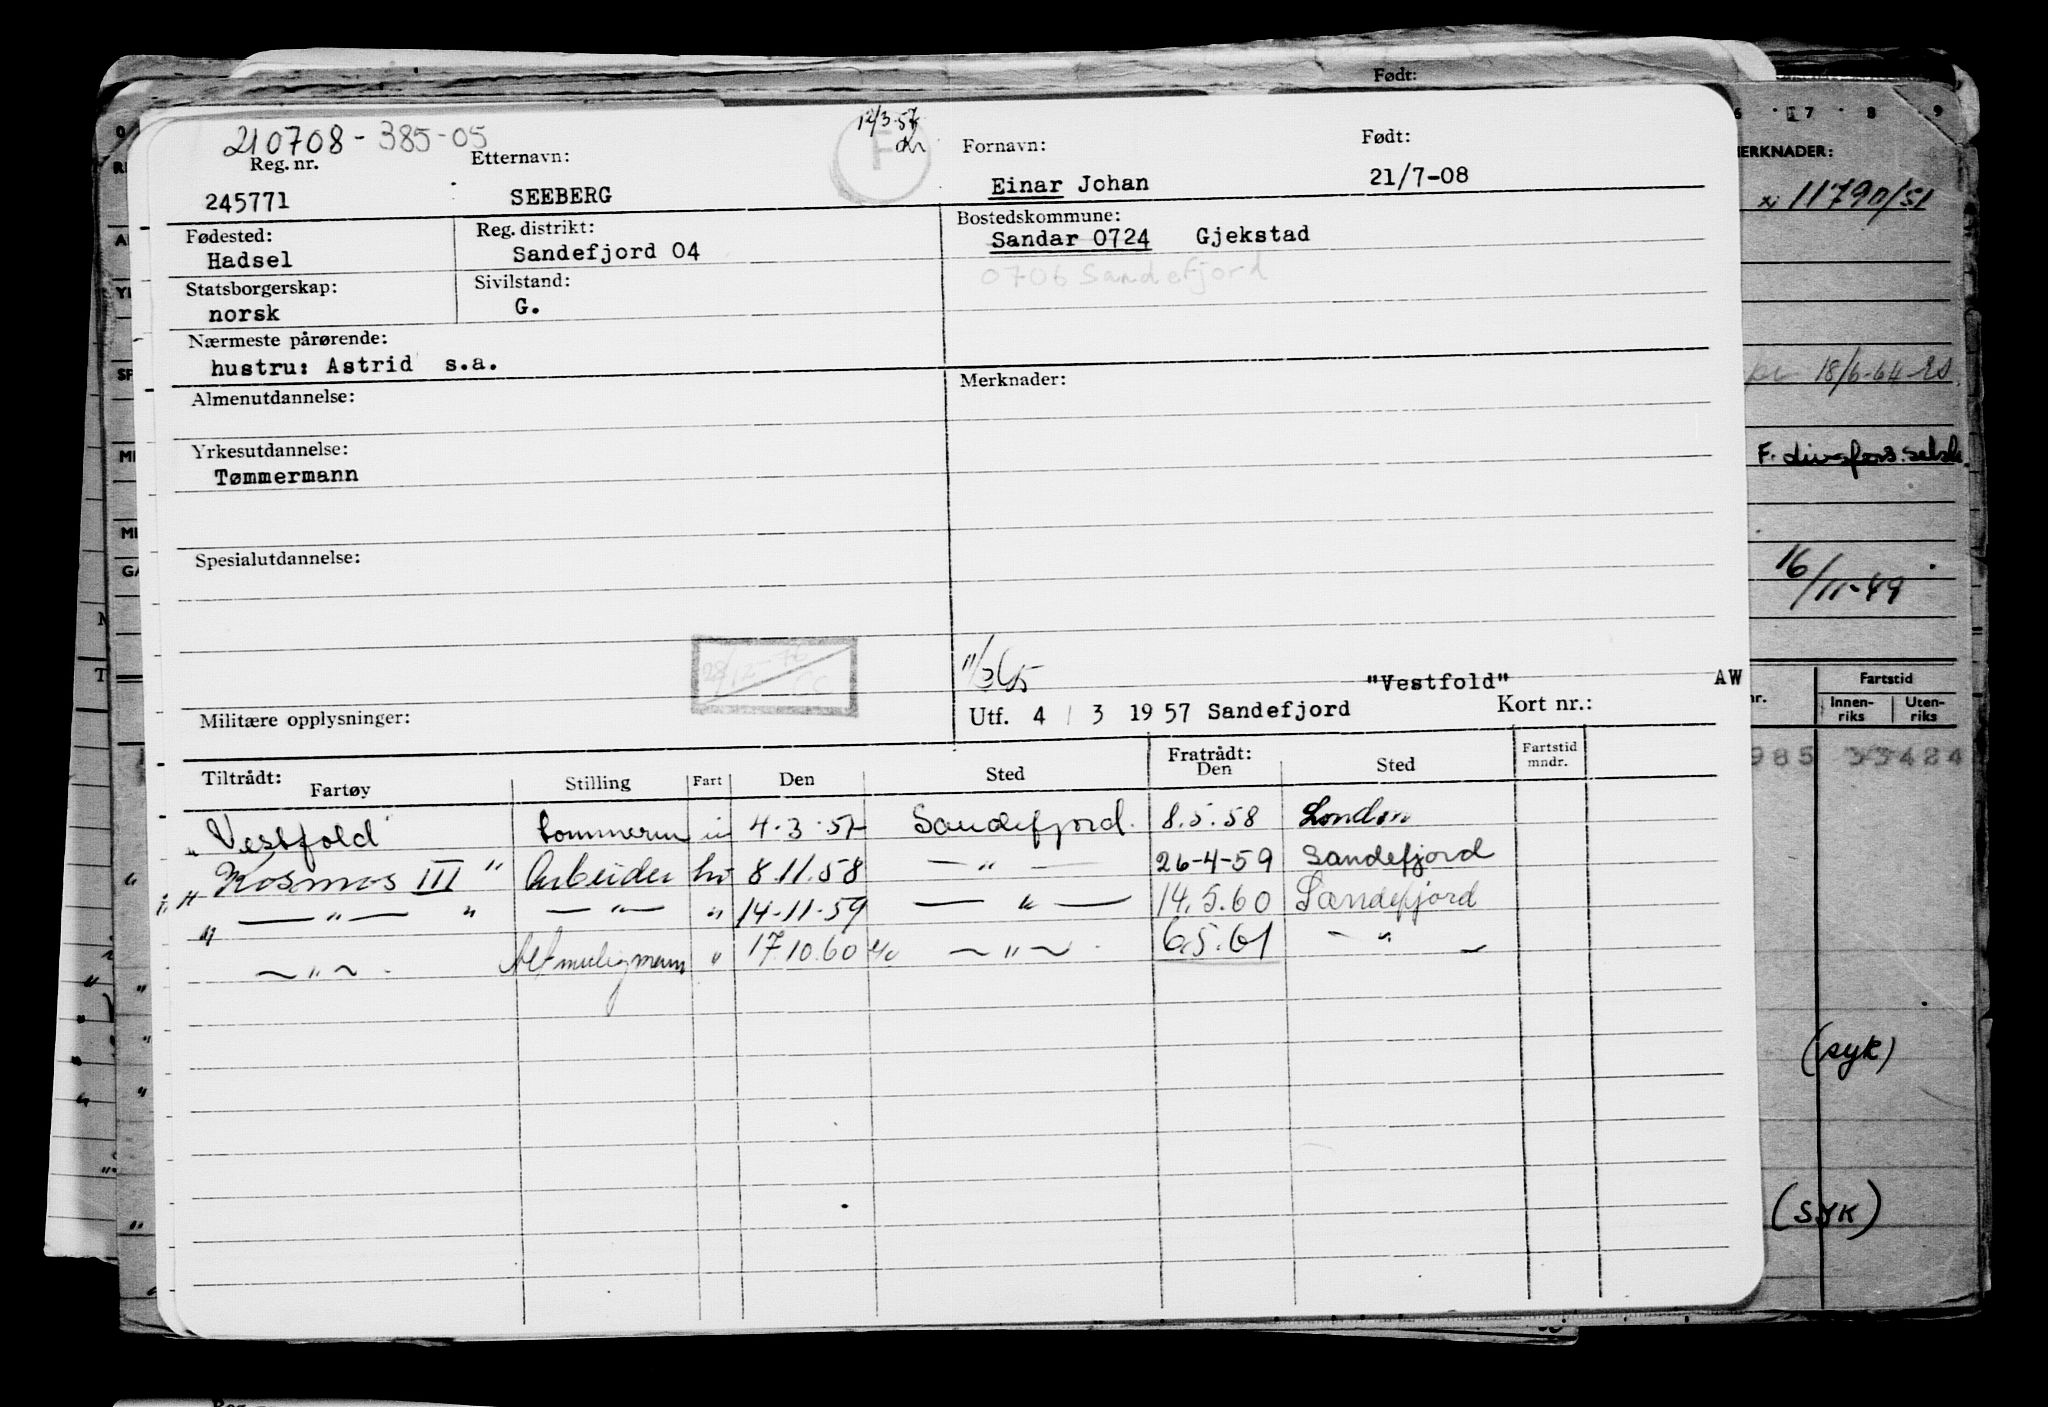 Født:
210708-385-05
12/3-57
F
Reg. nr. Etternavn: Fornavn: Født:
245771 SEEBERG Einar Johan 21/7-08
Fødested: Reg. distrikt: Bostedskommune:
Hadsel Sandefjord 04 Sandar 0724 Gjekstad
0706 Sandefjord
Statsborgerskap: Sivilstand:
norsk G.
Nærmeste pårørende:
hustru: Astrid s.a.
Almenutdannelse: Merknader:
Yrkesutdannelse:
Tømmermann
Spesialutdannelse:
28/12-76
CC
"Vestfold" AW
Militære opplysninger: Utf. 4 / 3 1957 Sandefjord Kort nr.:
Tiltrådt: Fratrådt:
Fartøy Stilling Fart Den Sted Den Sted Fartstid mndr.
"Vestfold" tømmerm 4.3.57 Sandefjord. 8.5.58 London
"Kosmos III" Arbeider hv 8.11.58 — " — 26-4-59 Sandefjord
" — " — " — " — " 14-11-59 — " — 14.5.60 Sandefjord
— " — Altmuligmann " 17.10.60 — " — 6.5.61 — " —
6 7 8 9
MERKNADER:
11790/51
18/6-64
F. livsfors.selsk.
16/11-49
nr. Fartstid
Innenriks Utenriks
985 33424
(syk)
(SYK)